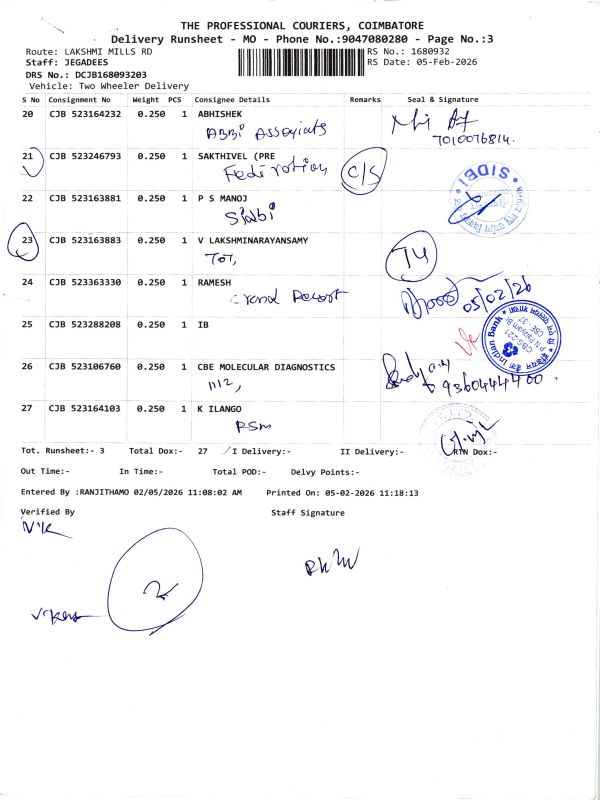 THE PROFESSIONAL COURIERS, COIMBATORE
Delivery Runsheet - MO - Phone No.:9047080280 - Page No.:3
Route: LAKSHMI MILLS RD
RS No.: 1680932
Staff: JEGADEES
RS Date: 05-Feb-2026
DRS No.: DCJB168093203
Vehicle: Two Wheeler Delivery
S No Consignment No Weight PCS Consignee Details Remarks Seal & Signature
20 CJB 523164232 0.250 1 ABHISHEK
ABBi Assoyiats
7010076814.
21 CJB 523246793 0.250 1 SAKTHIVEL (PRE
C/S
SIDBI
22 CJB 523163881 0.250 1 P S MANOJ
Sidbi
23 CJB 523163883 0.250 1 V LAKSHMINARAYANSAMY
24 CJB 523363330 0.250 1 RAMESH
05/02/26
25 CJB 523288208 0.250 1 IB
Indian Bank
CBS-221
P N Palayam Br
CBE-37
26 CJB 523106760 0.250 1 CBE MOLECULAR DIAGNOSTICS
9360444400
27 CJB 523164103 0.250 1 K ILANGO
PSM
Tot. Runsheet:- 3 Total Dox:- 27 I Delivery:- II Delivery:- RTN Dox:-
Out Time:- In Time:- Total POD:- Delvy Points:-
Entered By :RANJITHAMO 02/05/2026 11:08:02 AM Printed On: 05-02-2026 11:18:13
Verified By Staff Signature
2